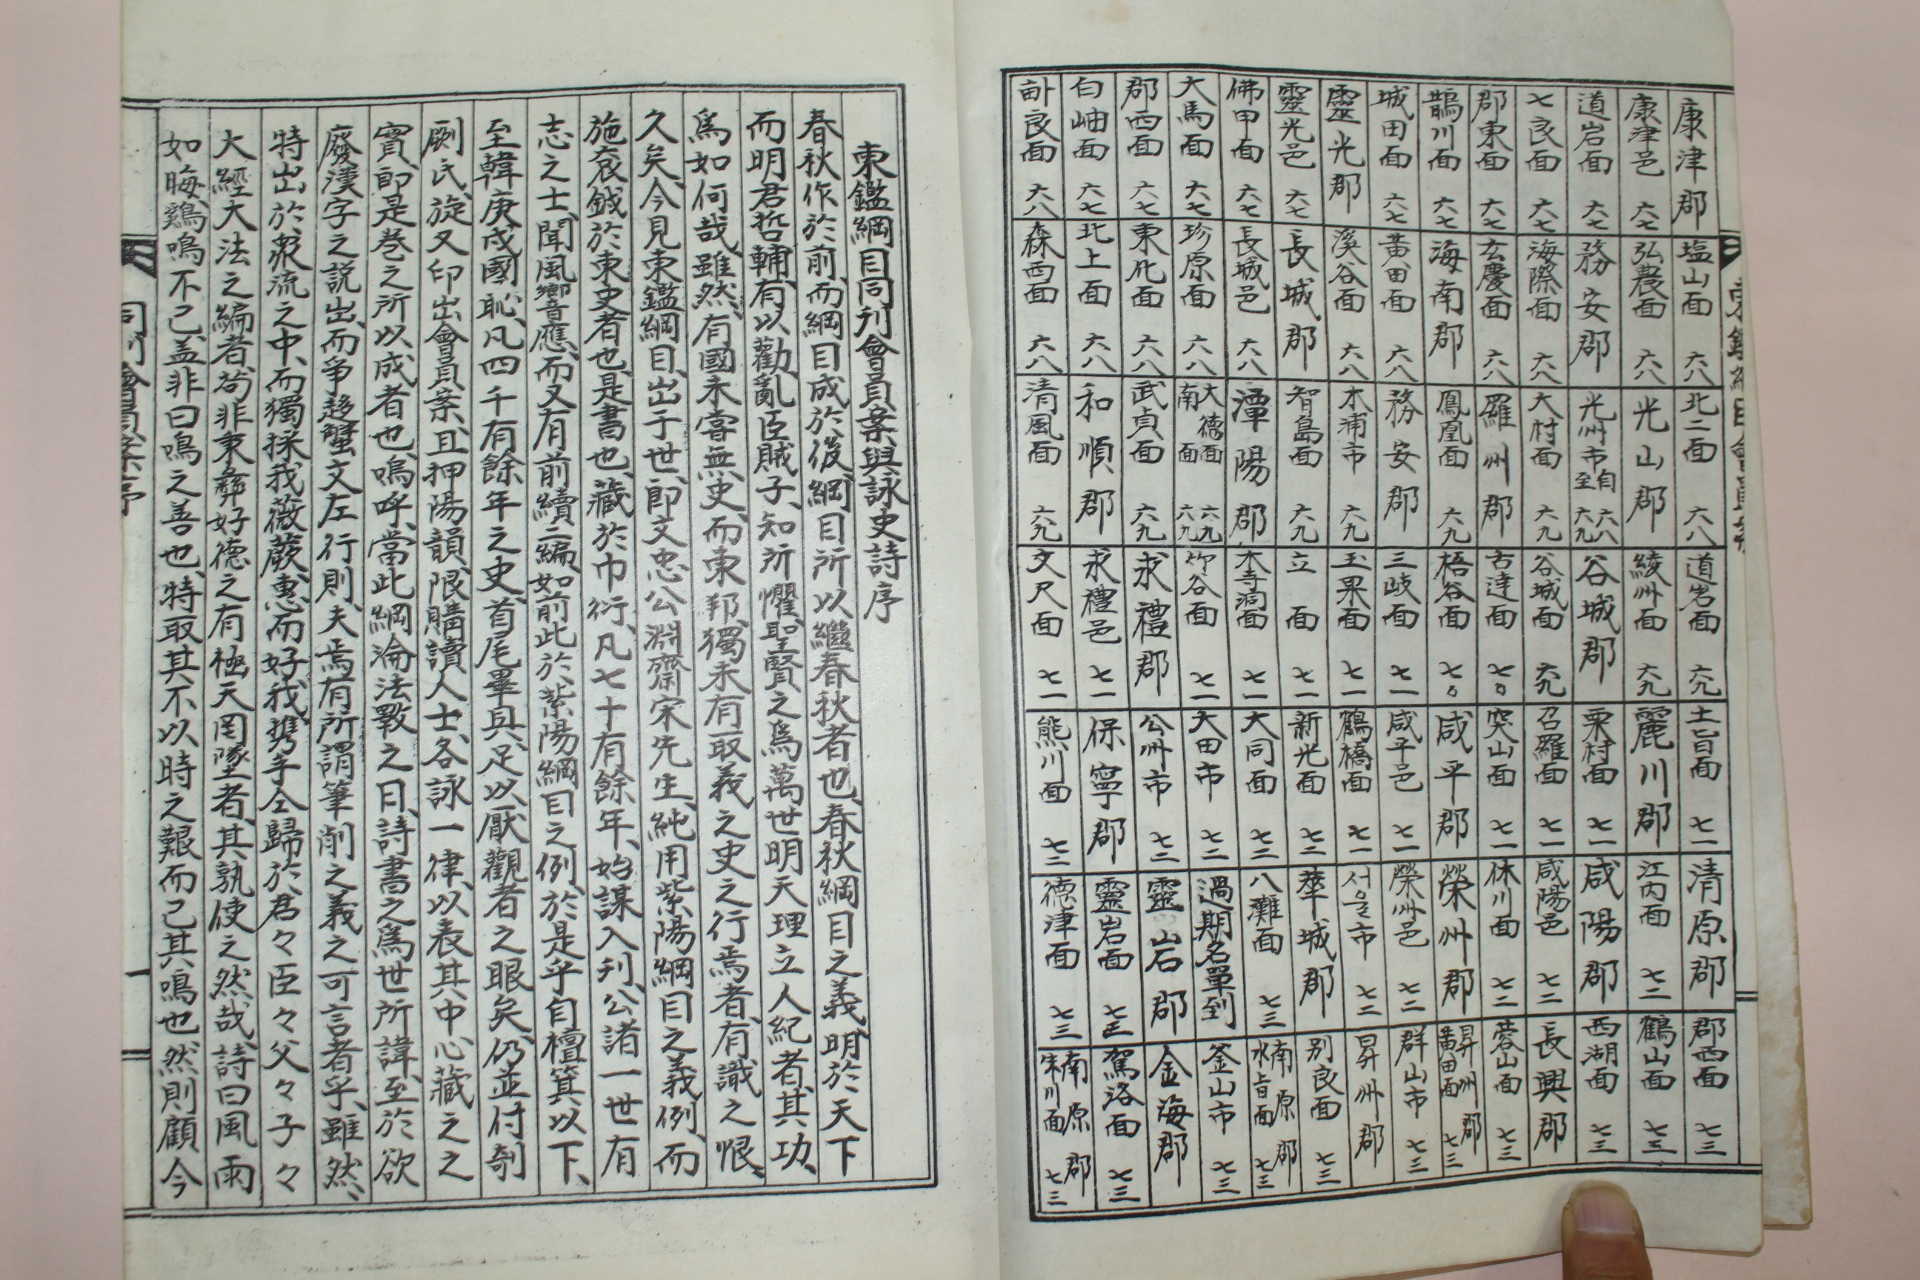 康津郡
康津邑 六七
道岩面 六七
七良面 六七
郡東面 六七
鵲川面 六七
城田面 六七
靈光郡
靈光邑 六七
佛甲面 六七
大馬面 六七
郡西面 六七
白岫面 六七
畝良面 六八
塩山面 六八
弘農面 六八
務安郡
海際面 六八
玄慶面 六八
海南郡
黃田面 六八
溪谷面 六八
長城郡
長城邑 六八
珍原面 六八
東化面 六八
北上面 六八
森西面 六八
北二面 六八
光山郡
光州市 自六八至六九
大村面 六九
羅州郡
鳳凰面 六九
務安郡
木浦市 六九
智島面 六九
潭陽郡
大德面 六九
南面 六九
武貞面 六九
和順郡
清風面 六九
道岩面 六九
綾州面 六九
谷城郡
谷城面 六九
古達面 七〇
梧谷面 七〇
三岐面 七一
玉果面 七一
立面 七一
木寺洞面 七一
竹谷面 七一
求禮郡
求禮邑 七一
文尺面 七一
土旨面 七一
麗川郡
栗村面 七一
召羅面 七一
突山面 七一
咸平郡
咸平邑 七一
鶴橋面 七一
新光面 七二
大同面 七二
大田市 七二
公州市 七二
保寧郡
熊川面 七二
清原郡
江內面 七二
咸陽郡
咸陽邑 七二
休川面 七二
榮州郡
榮州邑 七二
서울市 七二
華城郡
八灘面 七三
過期名單到
靈岩郡
靈岩面 七三
德津面 七三
郡西面 七三
鶴山面 七三
西湖面 七三
長興郡
蓉山面 七三
昇州郡
黃田面 七三
群山市 七三
昇州郡
別良面 七三
南原郡
水旨面 七三
釜山市 七三
金海郡
駕洛面 七三
南原郡
宋川面 七三
東鑑綱目同刊會員案與詠史詩序
春秋作於前而綱目成於後綱目所以繼春秋者也春秋綱目之義明於天下
而明君哲輔有以勸亂臣賊子知所懼聖賢之爲萬世明天理立人紀者其功
爲如何哉雖然有國未嘗無史而東邦獨未有取義之史之行焉者有識之恨
久矣今見東鑑綱目出于世郎文忠公淵齋宋先生純用紫陽綱目之義例而
施袞鉞於東史者也是書也藏於巾衍凡七十有餘年始謀入刊公諸一世有
志之士聞風響應而又有前續二編如前此於紫陽綱目之例於是乎自檀箕以下
至韓庚戌國恥凡四千有餘年之史首尾畢具足以厭觀者之眼矣仍並付剞
劂氏旋又印出會員案且押陽韻限購讀人士各詠一律以表其中心藏之之
實卽是巻之所以成者也嗚呼當此綱淪法斁之日詩書之爲世所諱至於欲
廢漢字之説出而爭趍蟹文左行則夫焉有所謂筆削之義之可言者乎雖然
特出於衆流之中而獨採我薇蕨惠而好我携手仝歸於君々臣々父々子々
大經大法之編者茍非秉彝好德之有極天罔墜者其孰使之然哉詩曰風雨
如晦鷄鳴不已盖非曰鳴之善也特取其不以時之艱而已其鳴也然則顧今